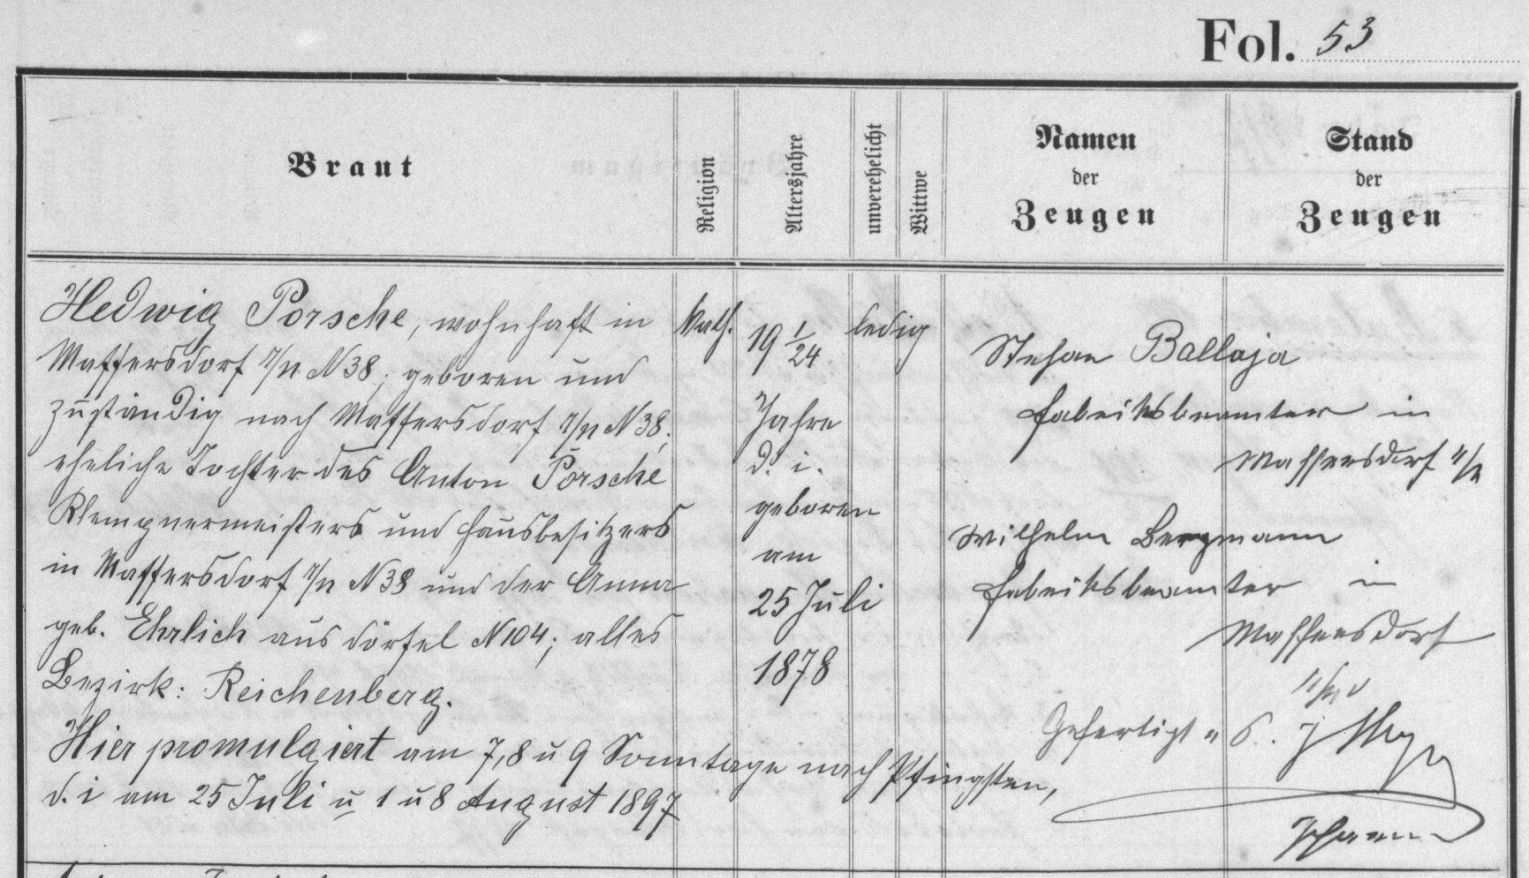 Fol. 53
Braut
Religion
Altersjahre
unverehelicht
Wittwe
Namen der Zeugen
Stand der Zeugen
Hedwig Porsche, wohnhaft in
Maffersdorf r/N N 38; geboren und
zuständig nach Maffersdorf r/N N 38;
eheliche Tochter des Anton Porsche
Klempnermeisters und Hausbesitzers
in Maffersdorf r/N N 38 und der Anna
geb. Ehrlich aus Dörfel N 104; alles
Bezirk: Reichenberg.
Hier promulgiert am 7, 8 u 9 Sonntage nach Pfingsten,
d. i am 25 Juli u 1 u 8 August 1897
kath.
19 1/24
Jahre
d. i.
geboren
am
25 Juli
1878
ledig
Stefan Ballaja
Fabriksbeamter in
Maffersdorf
Wilhelm Bergmann
Fabriksbeamter in
Maffersdorf
Gefertigt